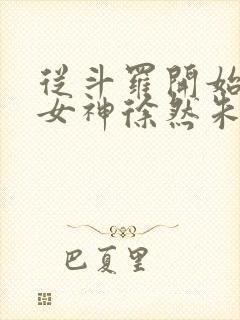 從斗羅開始
女神徐然朱
巴夏里